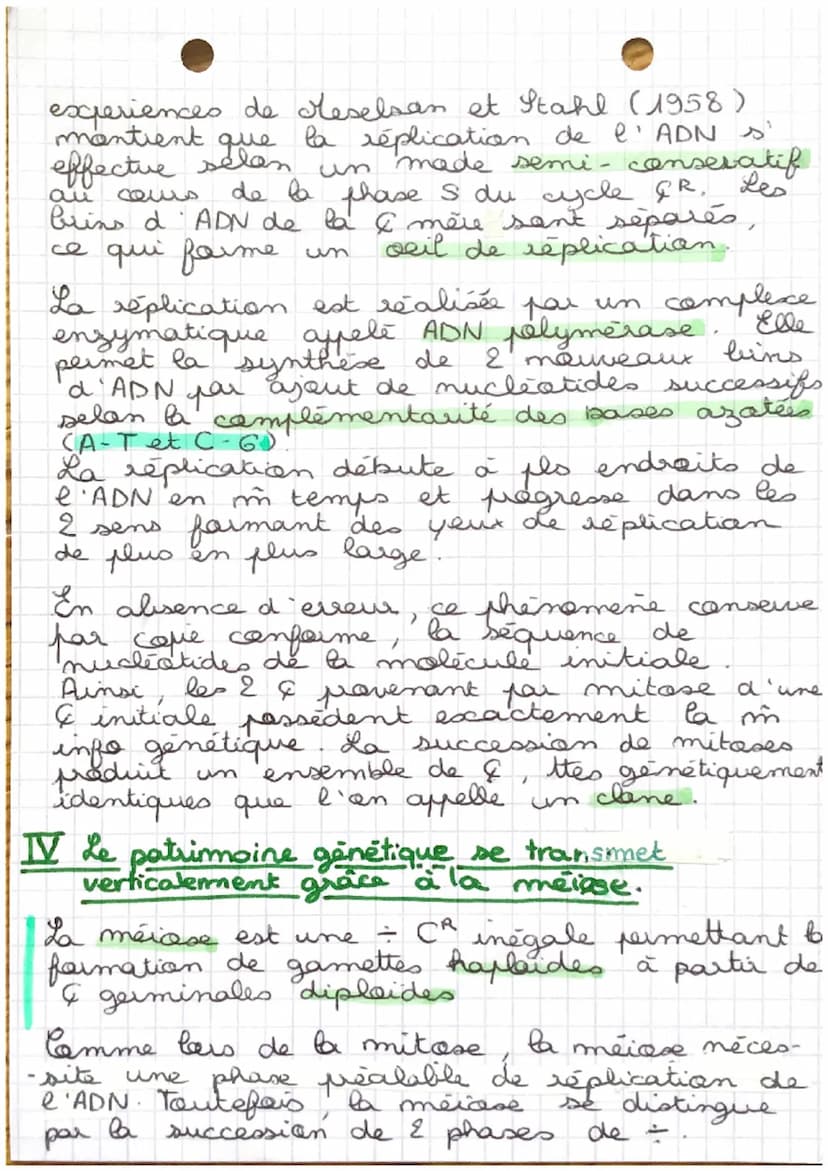 experiences de Meselson et Stahl (1958)
montrent que la réplication de l'ADN s'
effectue selon un mode semi-conservatif
au cours de la phase S du cycle ȼR. Les
brins d'ADN de la ȼ mère sont séparés,
ce qui forme un oeil de réplication.
La réplication est réalisée par un complexe
enzymatique appelé ADN polymérase. Elle
permet la synthèse de 2 nouveaux brins
d'ADN par ajout de nucléotides successifs
selon la complémentarité des bases azotées
(A-T et C-G)
La réplication débute à pls endroits de
l'ADN en m̂ temps et progresse dans les
2 sens formant des yeux de réplication
de plus en plus large.
En absence d'erreur, ce phénomène conserve
par copie conforme, la séquence de
nucléotides de la molécule initiale.
Ainsi, les 2 ȼ provenant par mitose d'une
ȼ initiale possèdent exactement la m̂
info génétique. La succession de mitoses
produit un ensemble de ȼ, ttes génétiquement
identiques que l'on appelle un clone.
IV Le patrimoine génétique se transmet
verticalement grâce à la méiose.
La méiose est une ÷ CR inégale permettant la
formation de gamettes haploïdes à partir de
ȼ germinales diploïdes
Comme lors de la mitose, la méiose néces-
-site une phase préalable de réplication de
l'ADN. Toutefois, la méiose se distingue
par la succession de 2 phases de ÷.